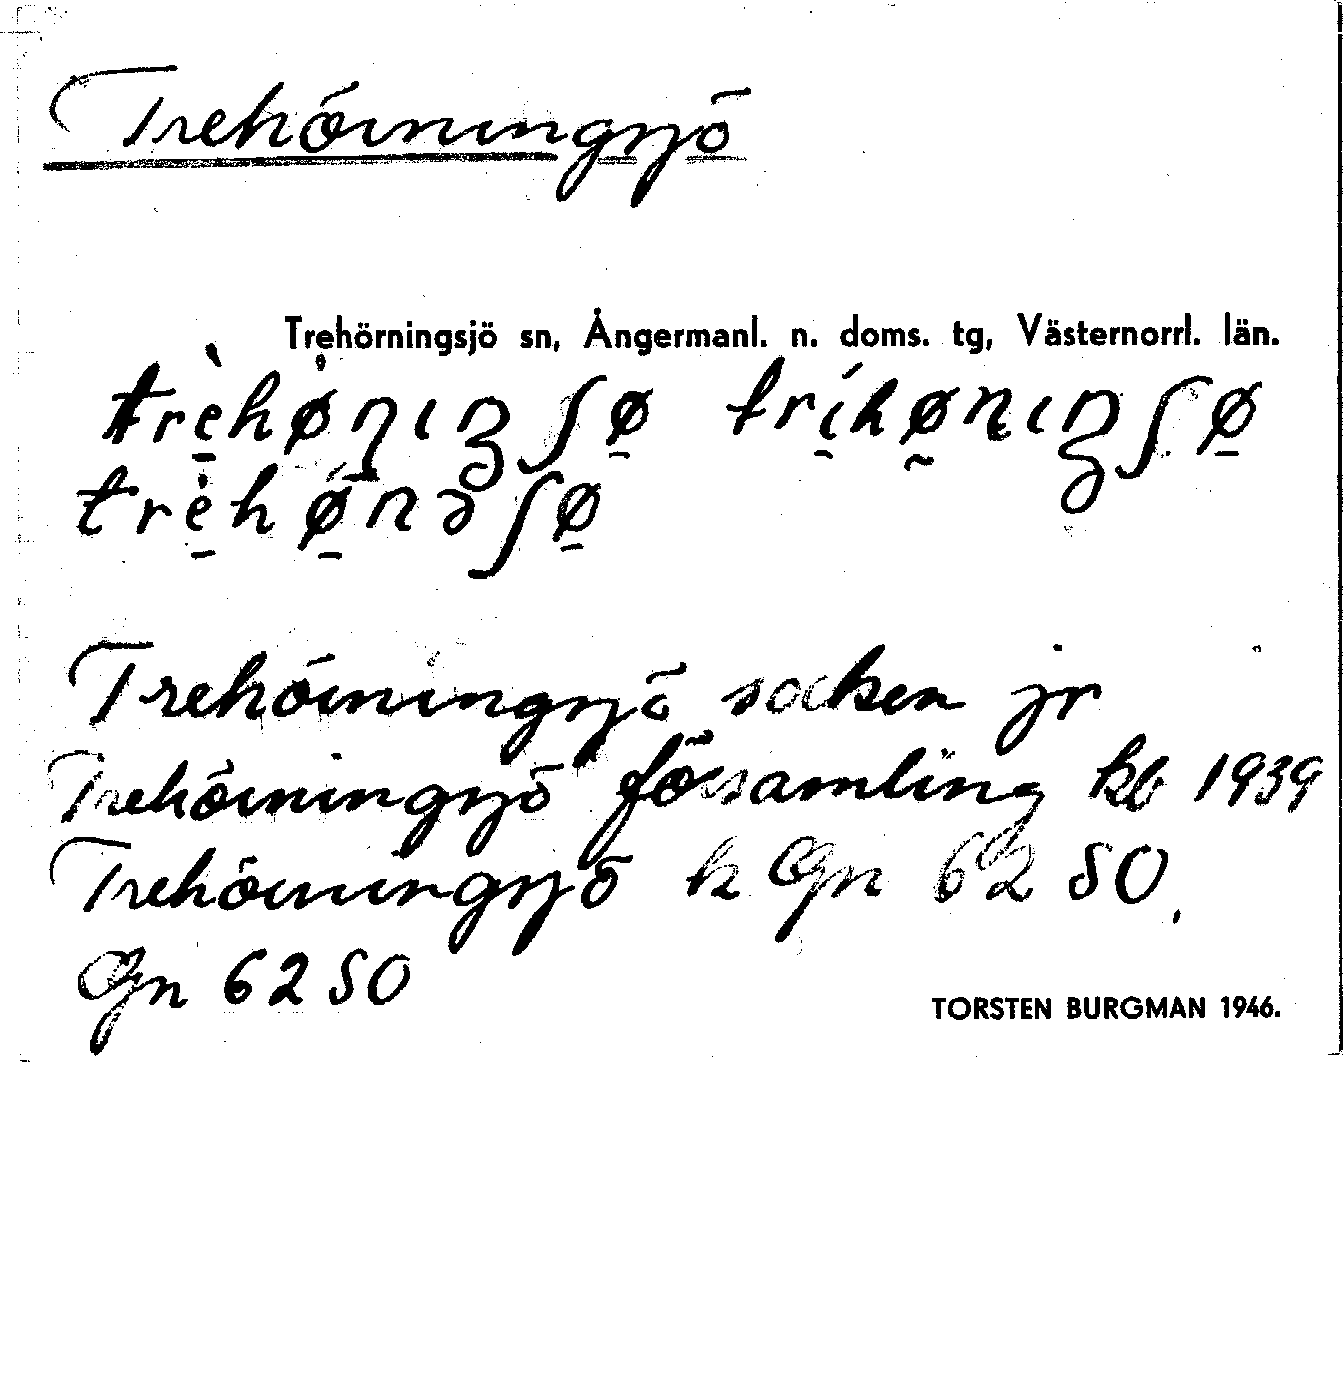 Trehörningsjö
Trehörningsjö sn, Ångermanl. n. doms. tg, Västernorrl. län.
Trehörningsjö socken jr
Trehörningsjö församling kb 1939
Trehörningsjö k Gn 62 SO,
Gn 62 SO
TORSTEN BURGMAN 1946.